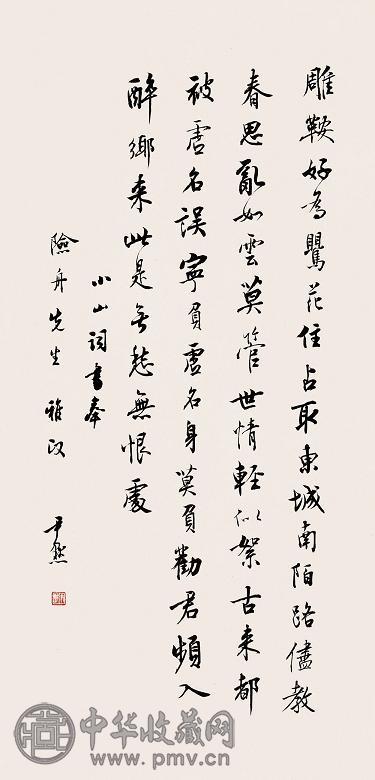 雕鞍好為鶯花住占取東城南陌路儘教
春思亂如雲莫管世情輕似絮古來都
被虛名誤寧負虛名身莫負勸君頻入
醉鄉来此是无愁無恨處
小山詞書奉
險舟先生雅政 尹默
中华收藏网
www.pmv.cn